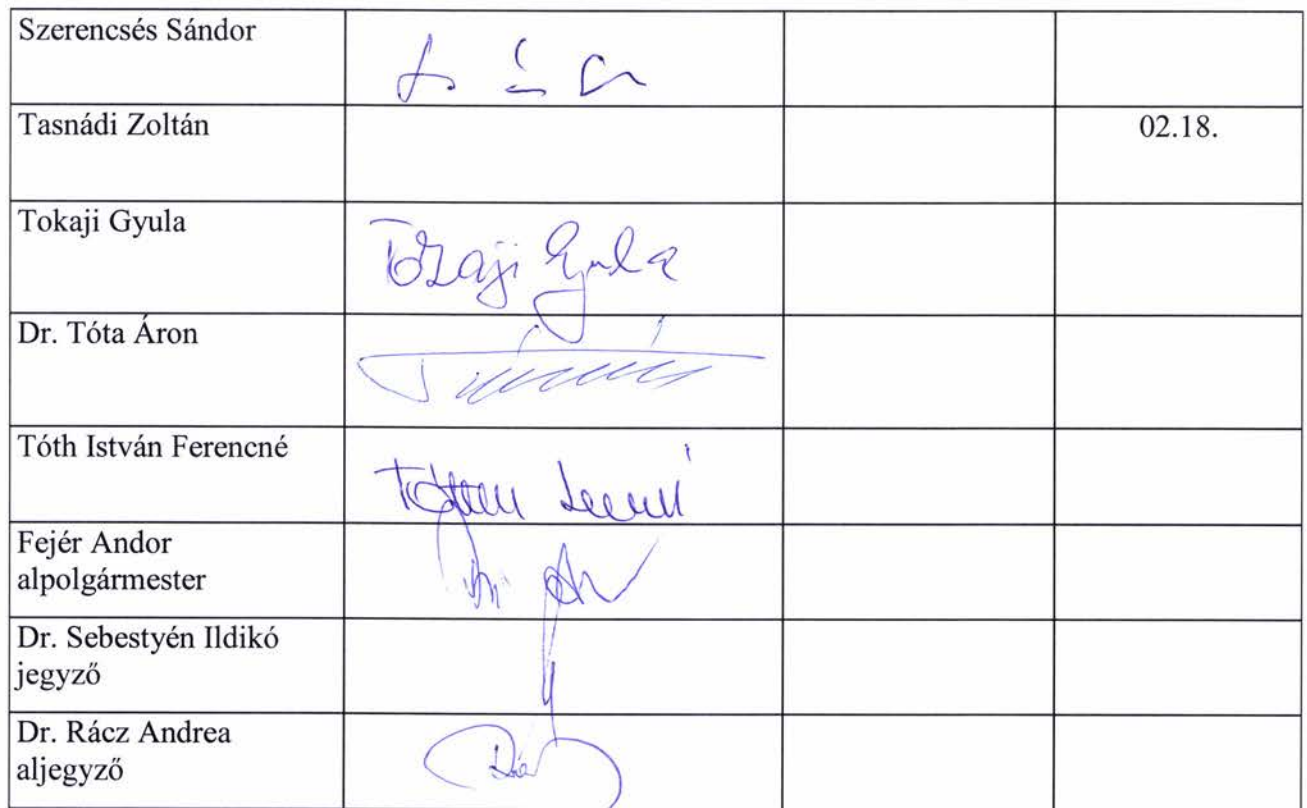 Szerencsés Sándor
Tasnádi Zoltán
02.18.
Tokaji Gyula
Tokaji Gyula
Dr. Tóta Áron
Tóth István Ferencné
Fejér Andor
alpolgármester
Dr. Sebestyén Ildikó
jegyző
Dr. Rácz Andrea
aljegyző